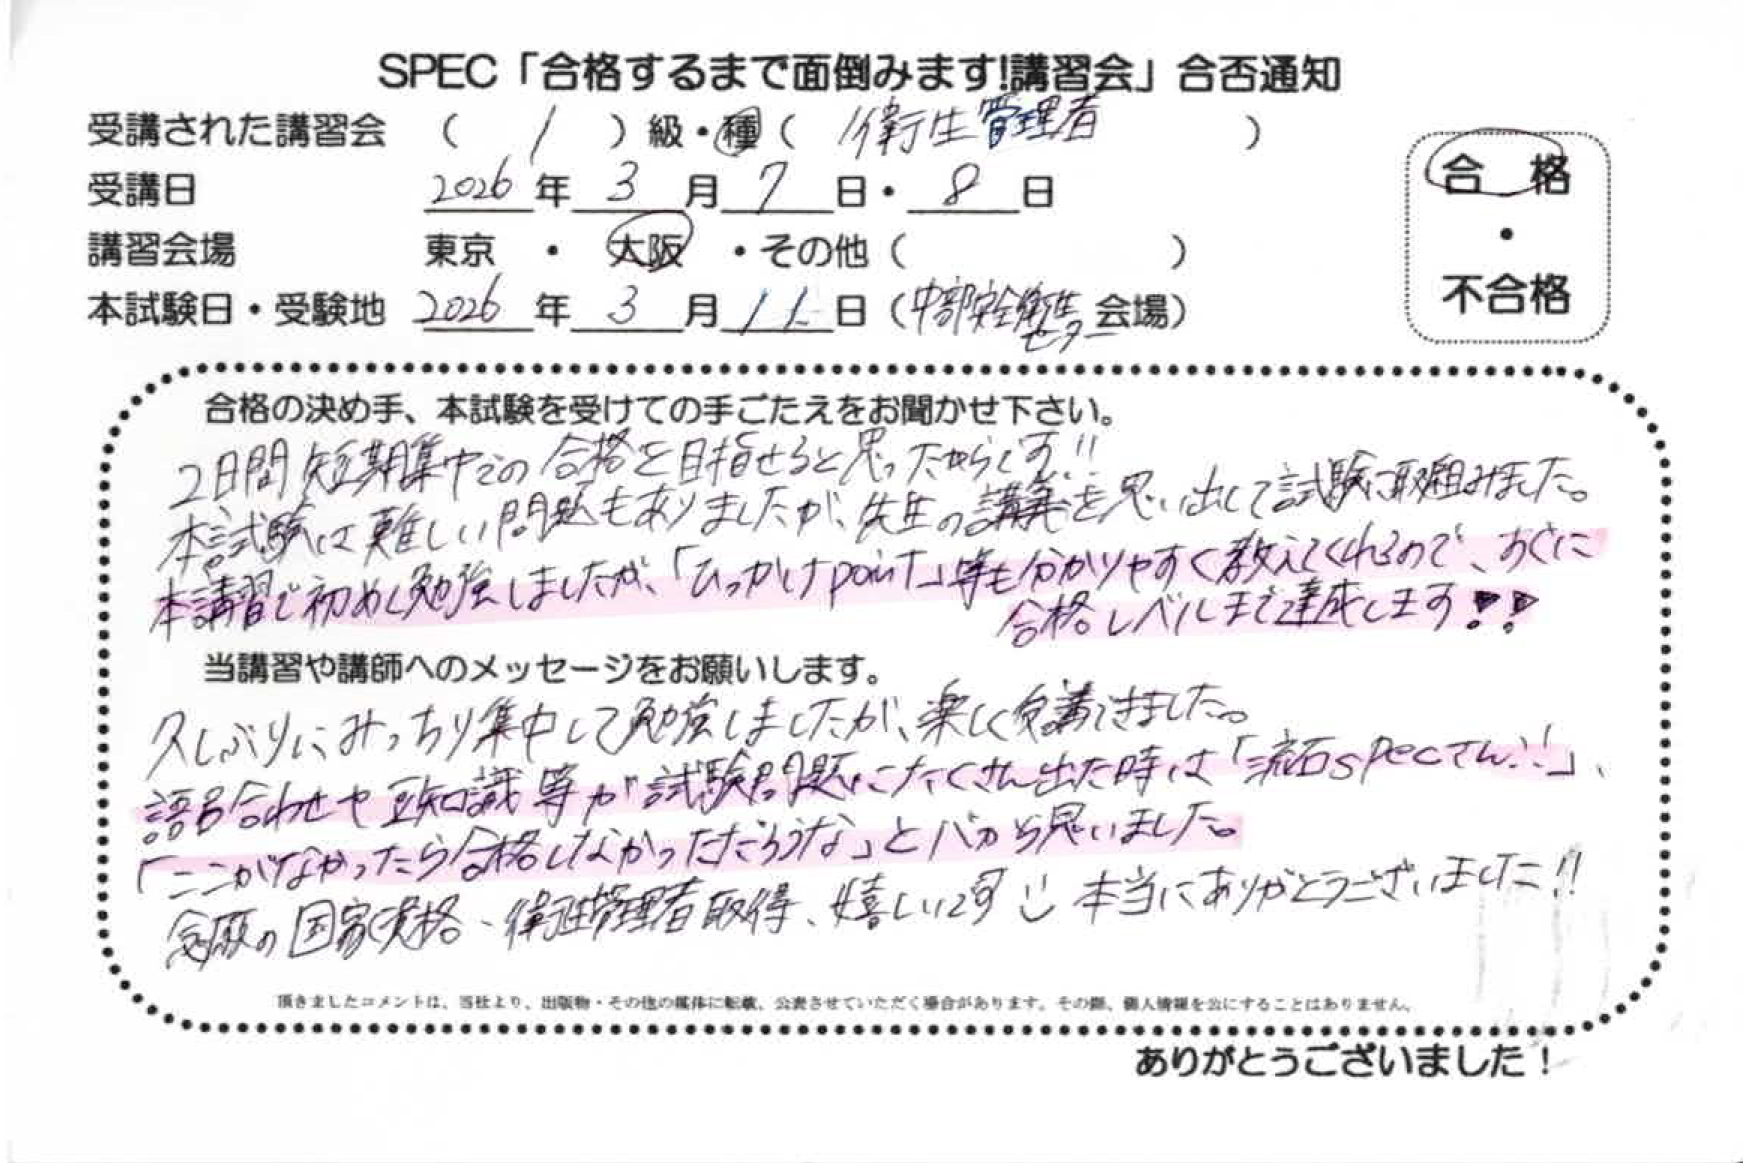 SPEC「合格するまで面倒みます!講習会」合否通知
受講された講習会 ( 1 ) 級・種 ( 衛生管理者 )
受講日 2026 年 3 月 7 日・ 8 日
講習会場 東京 ・ 大阪 ・その他 ( )
本試験日・受験地 2026 年 3 月 11 日 (中部安全衛生センター 会場)
合 格
・
不合格
合格の決め手、本試験を受けての手ごたえをお聞かせ下さい。
2日間短期集中での合格を目指せると思ったからです!!
本試験は難しい問題もありましたが、先生の講義を思い出して試験に取組みました。
本講習で初めて勉強しましたが、「ひっかけpoint」等も分かりやすく教えてくれるので、すぐに
合格レベルまで達成します!!
当講習や講師へのメッセージをお願いします。
久しぶりにみっちり集中して勉強しましたが、楽しく受講できました。
語呂合わせや豆知識等が試験問題にたくさん出た時は「流石specさん!!」、
「ここがなかったら合格しなかっただろうな」と心から思いました。
念願の国家資格、衛生管理者取得、嬉しいです 本当にありがとうございました!!
頂きましたコメントは、当社より、出版物・その他の媒体に転載、公表させていただく場合があります。その際、個人情報を公にすることはありません。
ありがとうございました!